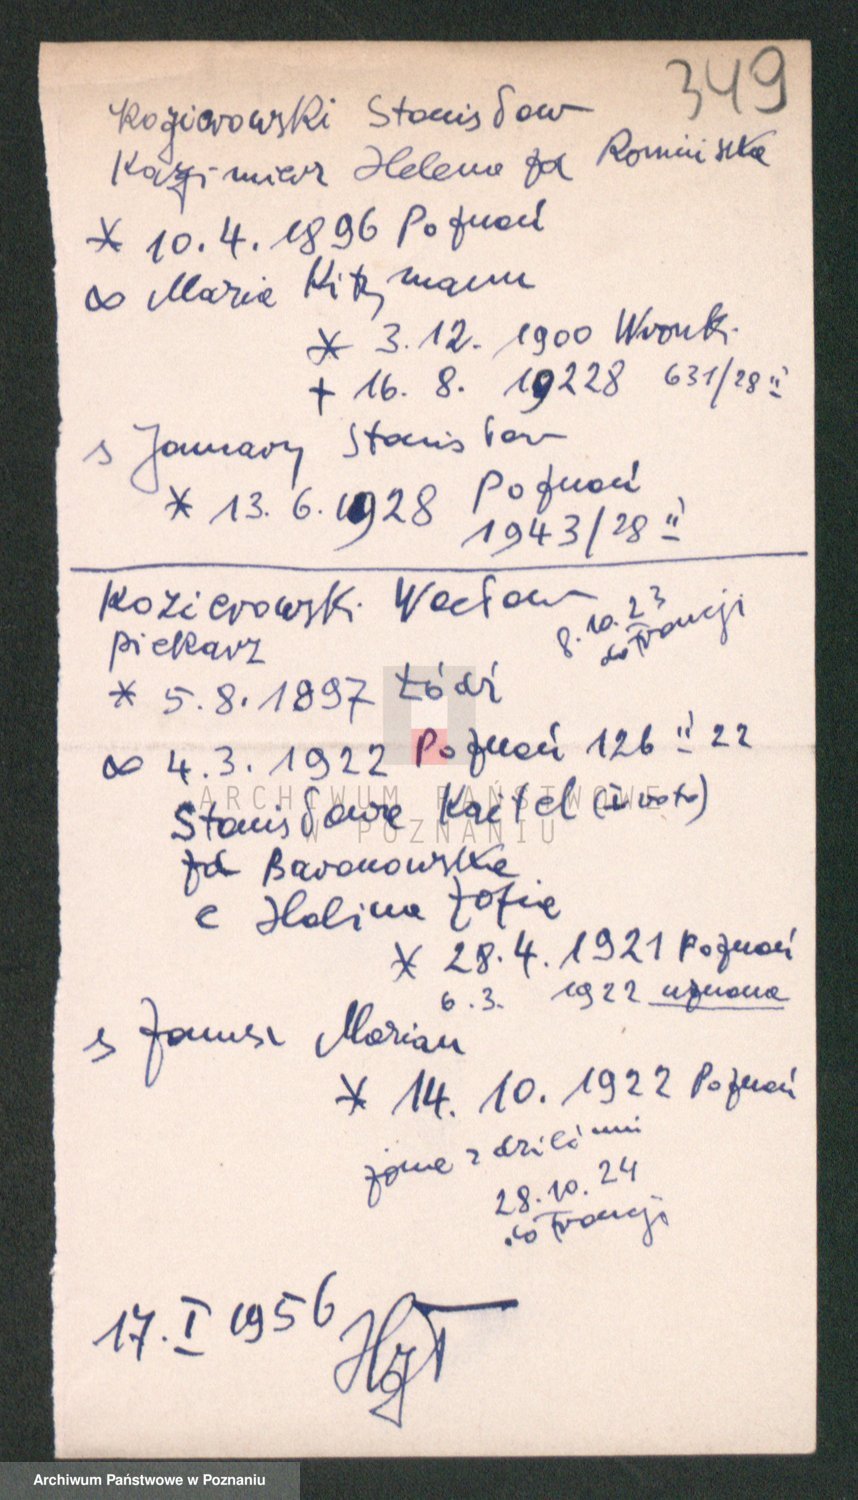 349
Kozierowski Stanisław
Kazimierz Helena zd Romińska
* 10. 4. 1896 Poznań
∞ Maria Kitzmann
* 3. 12. 1900 Wronki
+ 16. 8. 19228 631/28 II
s January Stanisław
* 13. 6. 1928 Poznań
1943/28 II
Kozierowski Wacław
8. 10. 23
do Francji
piekarz
* 5. 8. 1897 Łódź
∞ 4. 3. 1922 Poznań 126 II 22
Stanisława Kaitel
zd Baranowska
c Halina Zofia
* 28. 4. 1921 Poznań
6. 3. 1922 uznana
s Janusz Marian
* 14. 10. 1922 Poznań
żona z dziećmi
28. 10. 24
do Francji
17. I 1956
ARCHIWUM PAŃSTWOWE
W POZNANIU
Archiwum Państwowe w Poznaniu